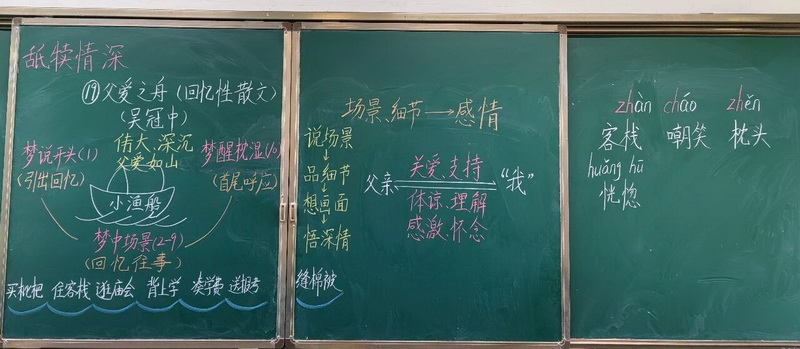 舐犊情深
⑲父爱之舟(回忆性散文)
(吴冠中)
伟大、深沉
父爱如山
梦说开头(1)
(引出回忆)
梦醒枕湿(10)
(首尾呼应)
小渔船
梦中场景(2-9)
(回忆往事)
买枇杷 住客栈 逛庙会 背上学 凑学费 送报考 缝棉被
场景、细节→感情
说场景
品细节
想画面
悟深情
父亲
关爱、支持
体谅、理解
感激、怀念
“我”
zhàn cháo zhěn
客栈 嘲笑 枕头
huǎng hū
恍惚